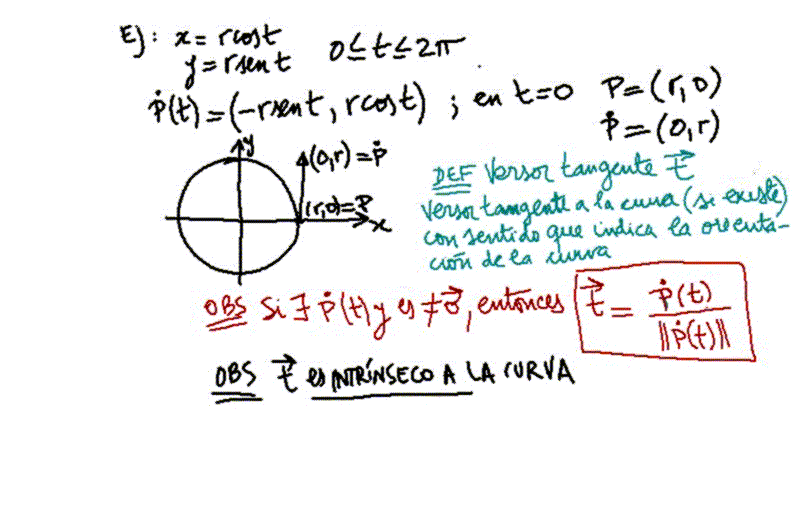 Ej: x = rcost
y = rsent 0 ≤ t ≤ 2π
Ṗ(t) = (-rsent, rcost) ; en t=0 P = (r,0)
Ṗ = (0,r)
y
(0,r) = Ṗ
(r,0) = P
x
DEF Versor tangente t⃗
Versor tangente a la curva (si existe)
con sentido que indica la orienta-
ción de la curva
OBS Si ∃ Ṗ(t) y es ≠ 0⃗, entonces t⃗ = Ṗ(t) / ||Ṗ(t)||
OBS t⃗ es INTRÍNSECO A LA CURVA